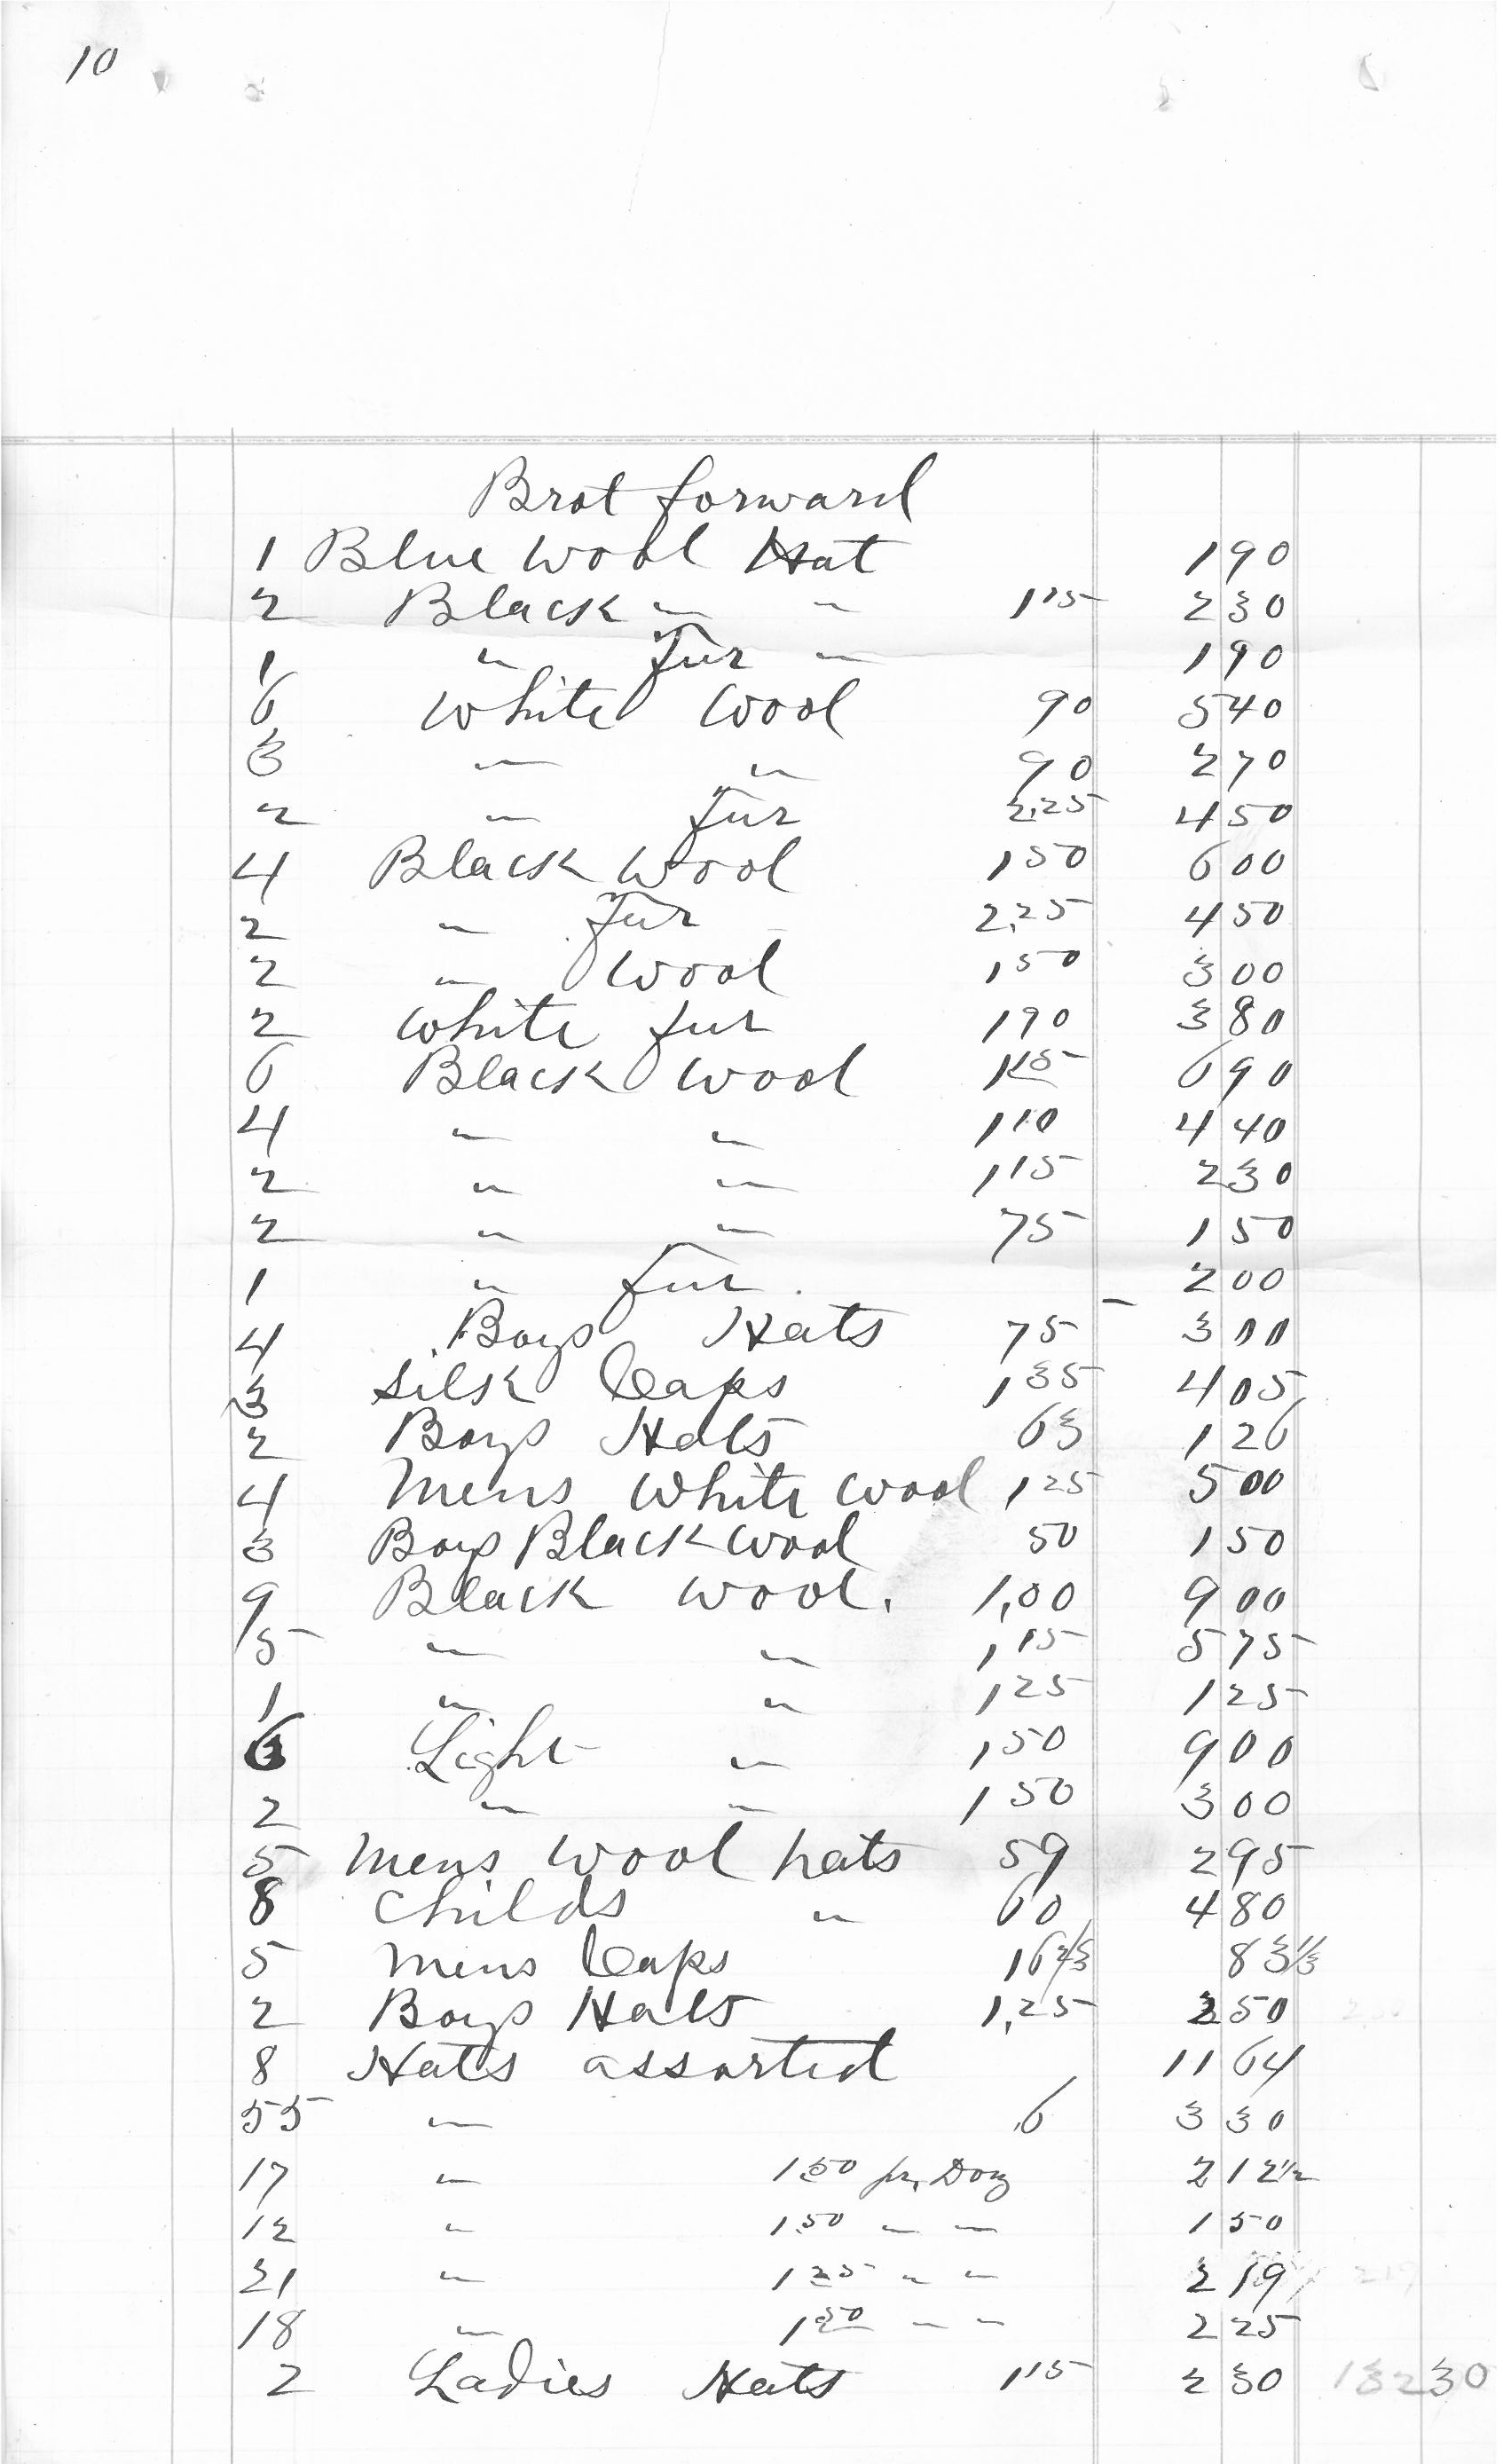 10
Brot forward
1 Blue Wool Hat 1 90
2 Black " " 1 15 2 30
1 " fur " 1 90
6 White Wool 90 5 40
3 " " 90 2 70
2 " fur 2.25 4 50
4 Black Wool 1 50 6 00
2 " fur 2.25 4 50
2 " Wool 1 50 3 00
2 White fur 1 90 3 80
6 Black Wool 1 15 6 90
4 " " 1 10 4 40
2 " " 1 15 2 30
2 " " 75 1 50
1 " fur 2 00
4 Boys Hats 75 3 00
3 Silk Caps 1 35 4 05
2 Boys Hats 63 1 26
4 Mens White Wool 1 25 5 00
3 Boys Black Wool 50 1 50
9 Black Wool. 1,00 9 00
5 " " 1 15 5 75
1 " " 1 25 1 25
6 Light " 1 50 9 00
2 " " 1 50 3 00
5 Mens Wool hats 59 2 95
8 Childs " 60 4 80
5 Mens Caps 16 2/3 83 1/3
2 Boys Hats 1,25 2 50
8 Hats assorted 11 64
55 " .6 3 30
17 " 1 50 pr. Doz 2 12 1/2
12 " 1.50 " " 1 50
21 " 1 25 " " 2 19
18 " 1 50 " " 2 25
2 Ladies Hats 1 15 2 30 132 30